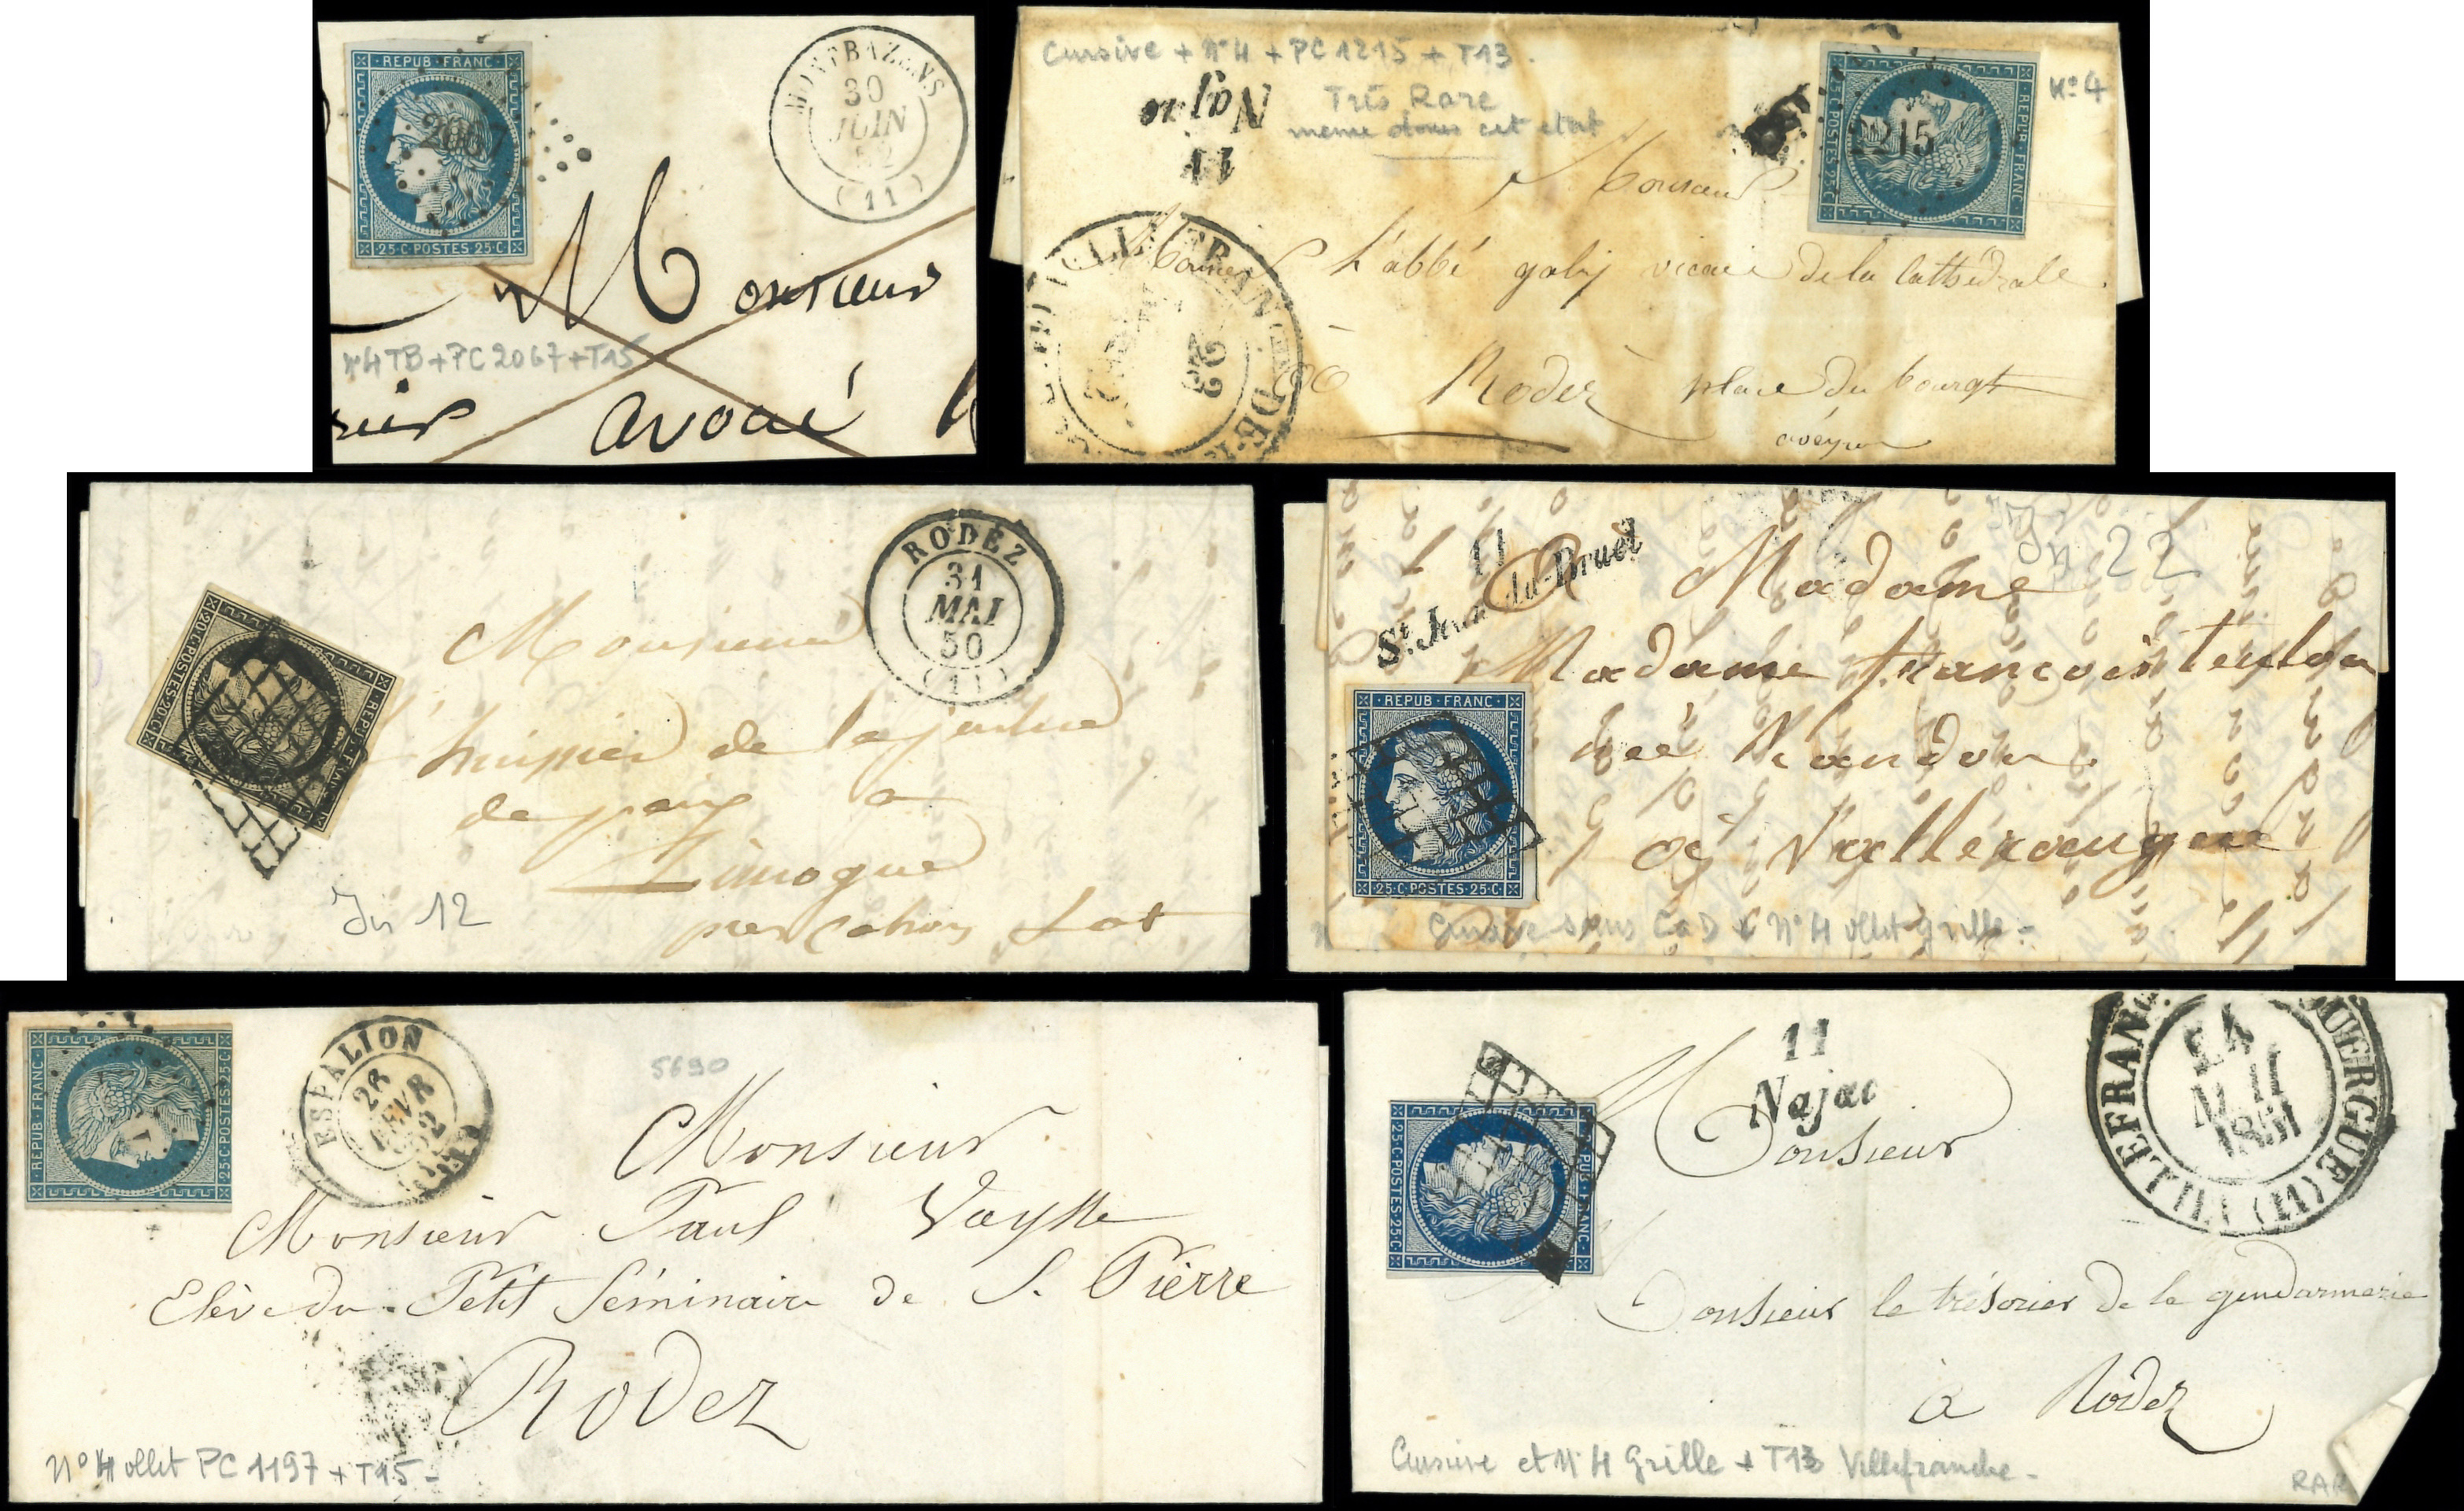 REPUB·FRANC·
2067
25·C·POSTES·25·C·
MONTBAZENS
30
JUIN
52
(11)
Monsieur
n°4 TB + PC 2067 + T15
avoué
Cursive + n°4 + PC 1215 + T13.
Très Rare
meme dans cet etat
11
1215
REPUB·FRANC·
25·C·POSTES·25·C·
N°4
Monsieur
L'abbé galy vicaire de la Cathédrale.
à Rodez place du bourg
aveyron
20·C·POSTES·20·C·
REPUB·FRANC·
RODEZ
31
MAI
50
(11)
Monsieur
huissier de la justice
de paix a
Limogne
pres Cahors Lot
In 12
11
St. Jean-du-Bruel
In 22
Madame
Madame françois Teulon
née Randon
REPUB·FRANC·
25·C·POSTES·25·C·
à Valleraugue
Cursive sans CaD + N°4 oblit grille -
REPUB·FRANC·
25·C·POSTES·25·C·
ESPALION
26
FEVR
52
5690
Monsieur
Monsieur Paul Vaysse
Elève du Petit Séminaire de S. Pierre
Rodez
N°4 oblit PC 1197 + T15 -
11
Najac
24
1851
VILLEFRAN
OUERGUE (11)
25·C·POSTES·25·C·
REPUB·FRANC·
Monsieur
Monsieur le trésorier de la gendarmerie
à Rodez
Cursive et N°4 Grille + T13 Villefranche -
RAR